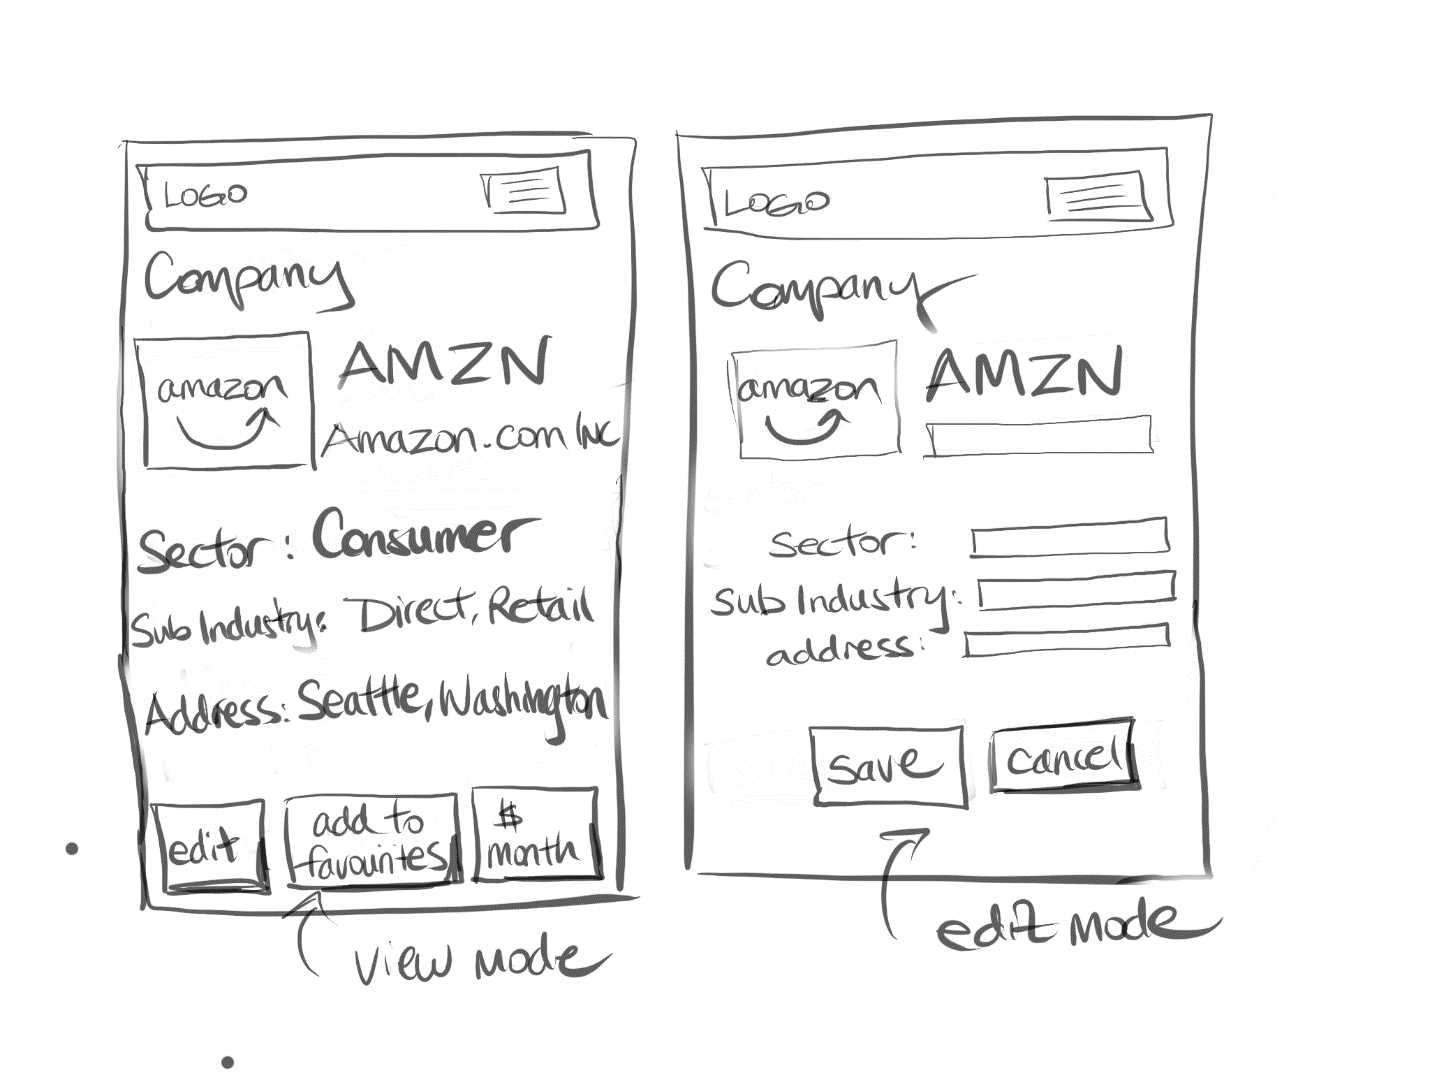 LOGO
Company
amazon
AMZN
Amazon.com INC
Sector: Consumer
Sub Industry: Direct, Retail
Address: Seattle, Washington
edit
add to
favourites
$
month
view mode
LOGO
Company
amazon
AMZN
Sector:
Sub Industry:
address:
save
cancel
edit mode